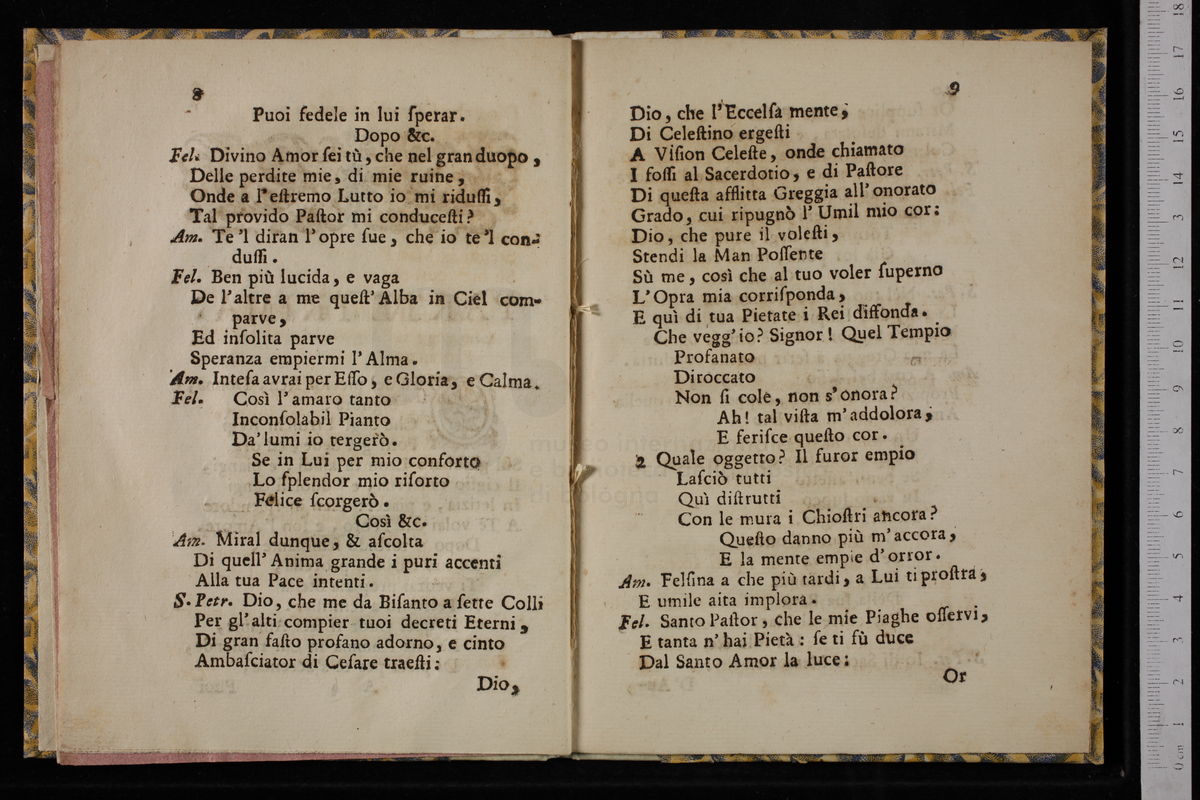 8
Puoi fedele in lui ſperar.
Dopo &c.
Fel. Divino Amor ſei tù, che nel gran duopo,
Delle perdite mie, di mie ruine,
Onde a l'eſtremo Lutto io mi riduſſi,
Tal provido Paſtor mi conduceſti?
Am. Te 'l diran l'opre ſue, che io te 'l con-
duſſi.
Fel. Ben più lucida, e vaga
De l'altre a me queſt' Alba in Ciel com-
parve,
Ed inſolita parve
Speranza empiermi l' Alma.
Am. Inteſa avrai per Eſſo, e Gloria, e Calma.
Fel. Così l'amaro tanto
Inconſolabil Pianto
Da' lumi io tergerò.
Se in Lui per mio conforto
Lo ſplendor mio riſorto
Felice ſcorgerò.
Così &c.
Am. Miral dunque, & aſcolta
Di quell' Anima grande i puri accenti
Alla tua Pace intenti.
S. Petr. Dio, che me da Biſanto a ſette Colli
Per gl'alti compier tuoi decreti Eterni,
Di gran faſto profano adorno, e cinto
Ambaſciator di Ceſare traeſti:
Dio,
9
Dio, che l'Eccelſa mente,
Di Celeſtino ergeſti
A Viſion Celeſte, onde chiamato
I foſſi al Sacerdotio, e di Paſtore
Di queſta afflitta Greggia all' onorato
Grado, cui ripugnò l' Umil mio cor:
Dio, che pure il voleſti,
Stendi la Man Poſſente
Sù me, così che al tuo voler ſuperno
L'Opra mia corriſponda,
E quì di tua Pietate i Rei diffonda.
Che vegg' io? Signor! Quel Tempio
Profanato
Diroccato
Non ſi cole, non s'onora?
Ah! tal viſta m'addolora,
E feriſce queſto cor.
2 Quale oggetto? Il furor empio
Laſciò tutti
Quì diſtrutti
Con le mura i Chioſtri ancora?
Queſto danno più m'accora,
E la mente empie d'orror.
Am. Felſina a che più tardi, a Lui ti proſtra,
E umile aita implora.
Fel. Santo Paſtor, che le mie Piaghe oſſervi,
E tanta n' hai Pietà: ſe ti fù duce
Dal Santo Amor la luce:
Or